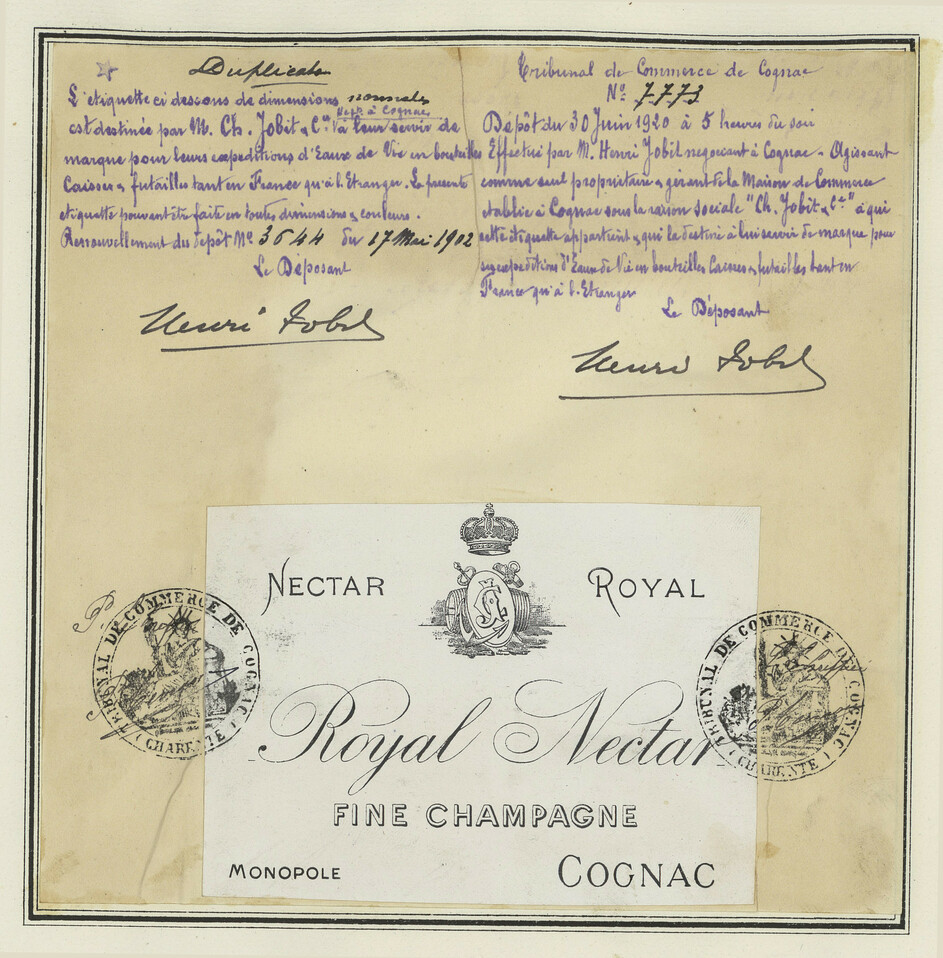 Duplicata
L'etiquette ci dessous de dimensions normales
est destinée par M. Ch. Jobit & Cie Negts à Cognac à leur servir de
marque pour leurs expeditions d'Eaux de Vie en bouteilles
Caisses & futailles tant en France qu'à l'Etranger. La presente
etiquette pouvant être faite en toutes dimensions & couleurs.
Renouvellement du depôt No 3644 du 17 Mai 1902
Le Déposant
Henri Jobit
Tribunal de Commerce de Cognac
No 7773
Dépôt du 30 Juin 1920 à 5 heures du soir
Effectué par M. Henri Jobit negociant à Cognac - Agissant
comme seul propriétaire & gérant de la Maison de Commerce
etablie à Cognac sous la raison sociale "Ch. Jobit & Cie" à qui
cette étiquette appartient & qui la destine à lui servir de marque pour
ses expeditions d'Eaux de Vie en bouteilles Caisses & futailles tant en
France qu'à l'Etranger
Le Déposant
Henri Jobit
NECTAR ROYAL
TRIBUNAL DE COMMERCE DE COGNAC
(CHARENTE)
TRIBUNAL DE COMMERCE DE COGNAC
(CHARENTE)
Royal Nectar
FINE CHAMPAGNE
MONOPOLE COGNAC